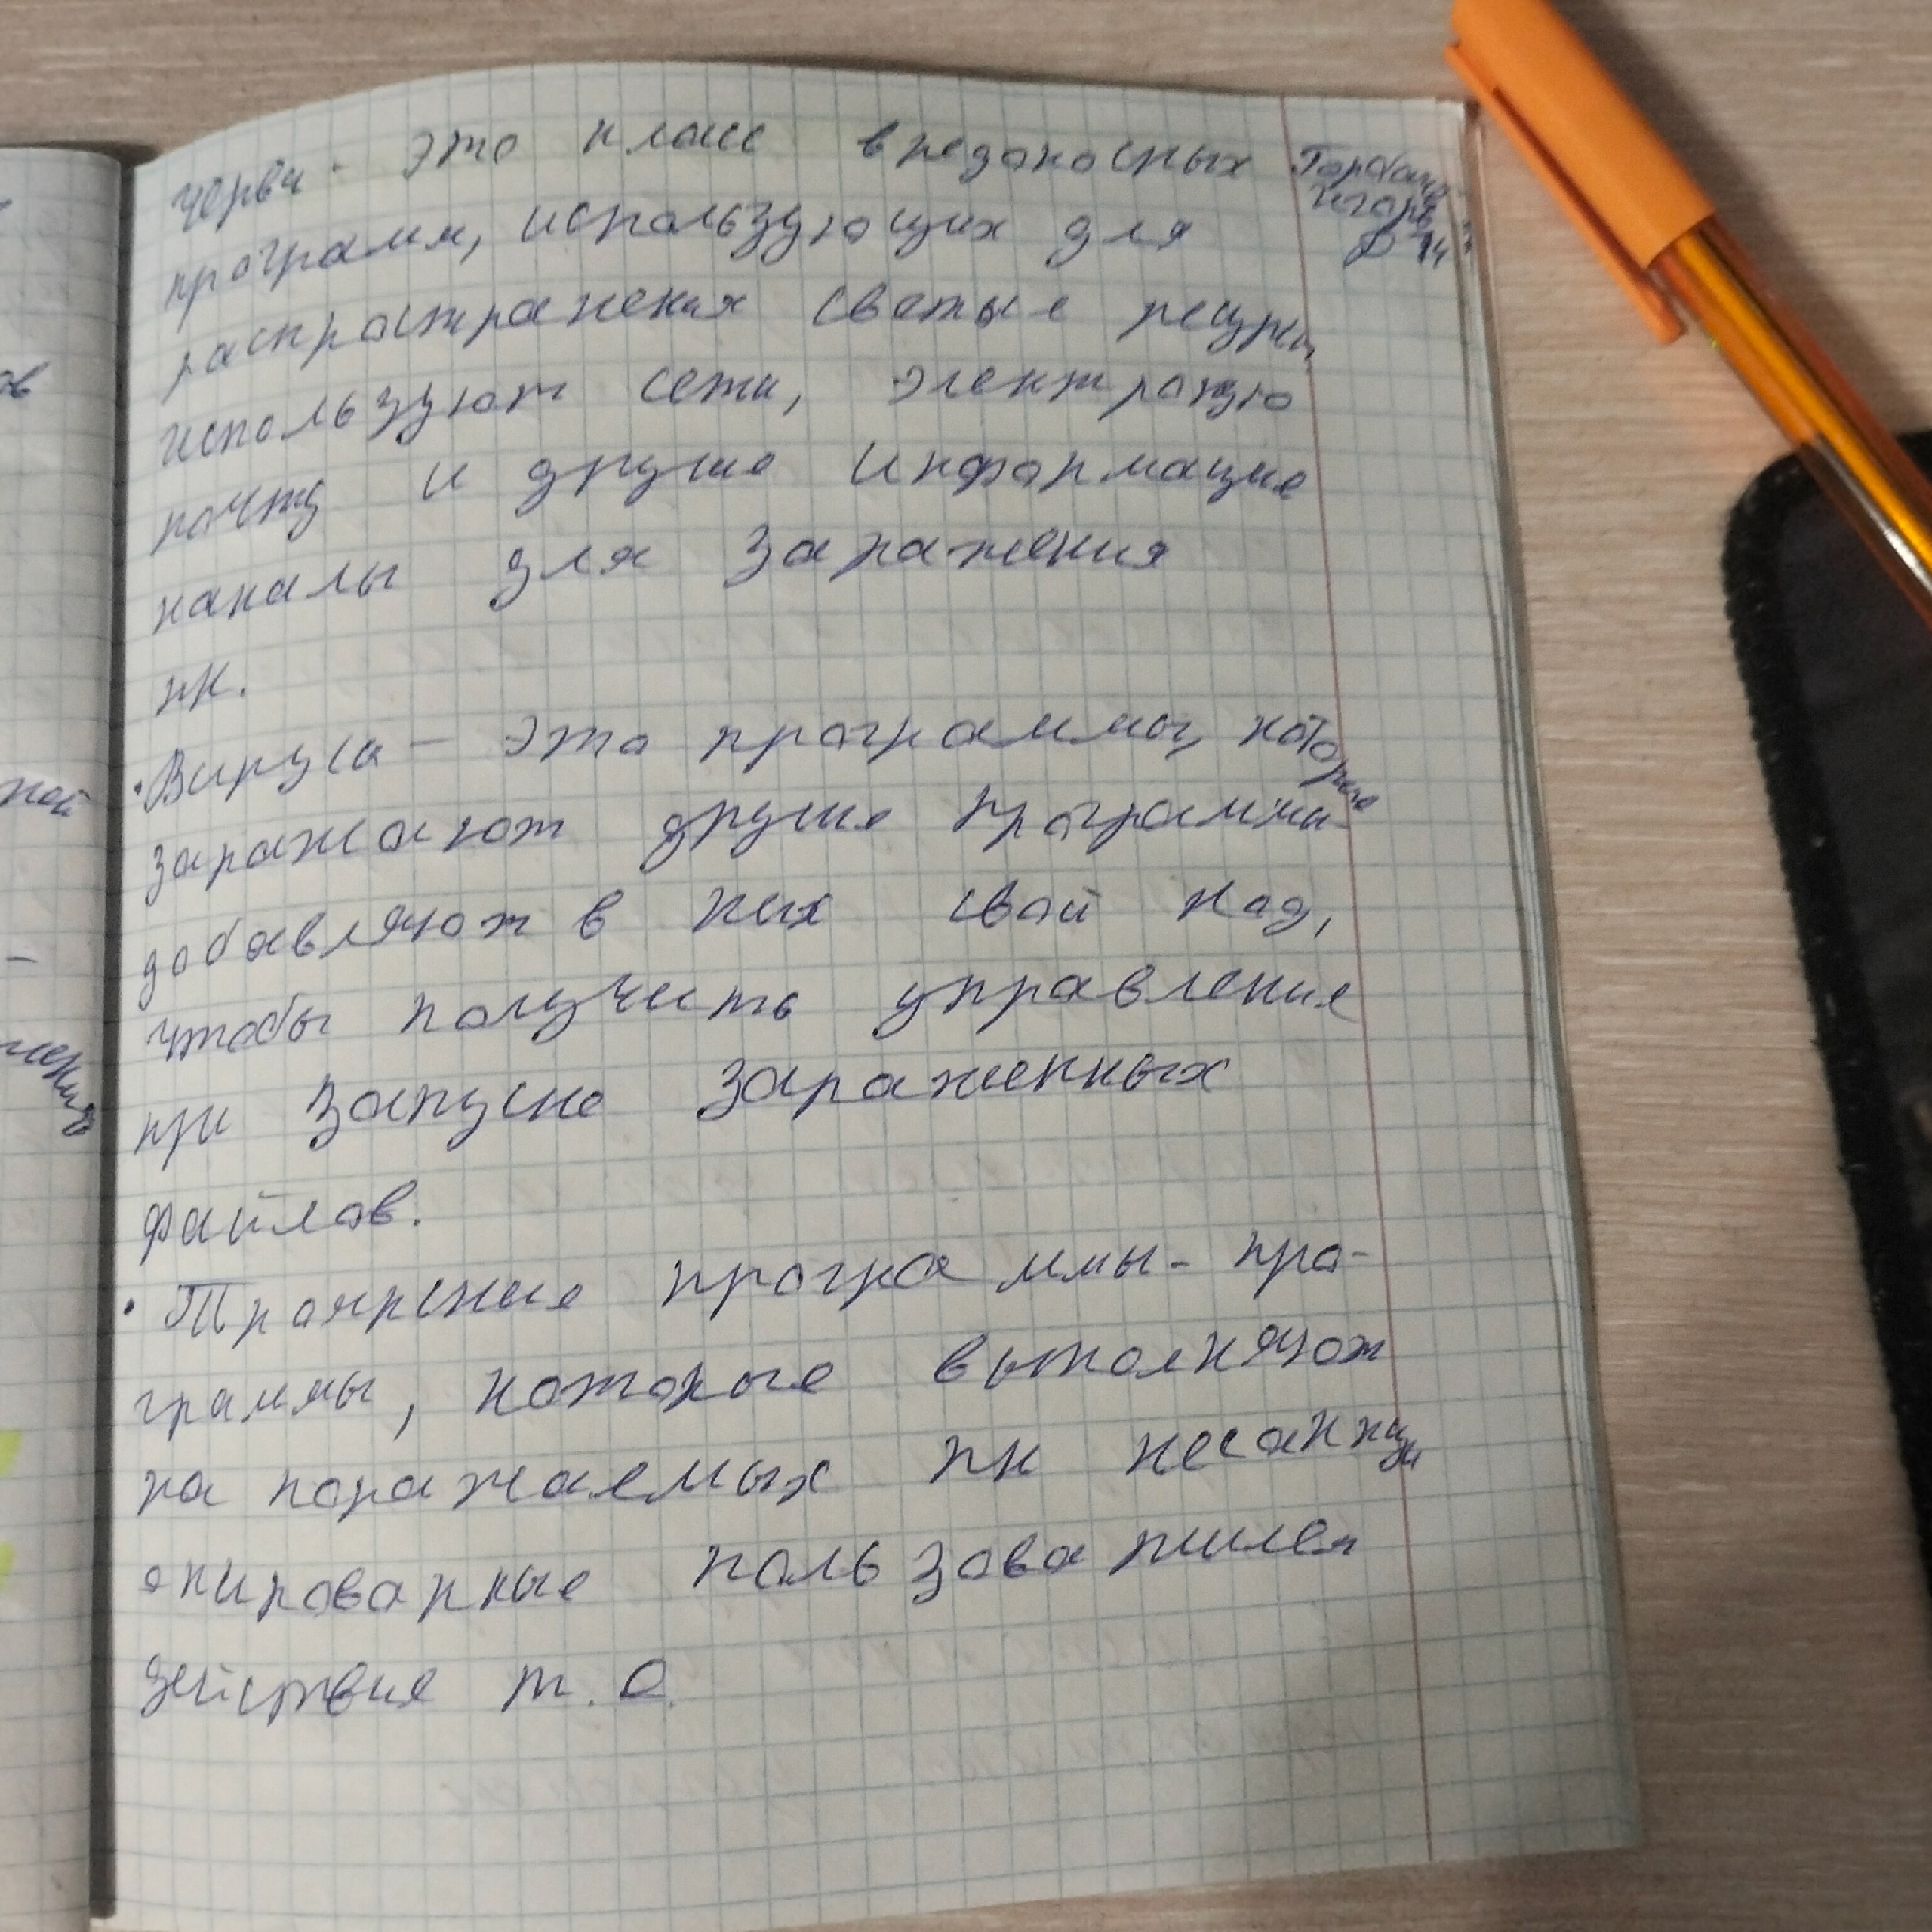 Черви - это класс вредоносных
программ, использующих для
распространения светые ресурсы,
используют сети, электроную
почту и другие информацие
каналы для заражения
пк.
• Вируса - это программы, которые
заражают другие программы-
добавляют в них свой код,
чтобы получить управление
при запуске зараженных
файлов.
• Троярские программы - про-
граммы, которые выполняют
на поражаемых пк несанкци
онированные пользователем
действие т. О.
Игорь
ов
ной
-